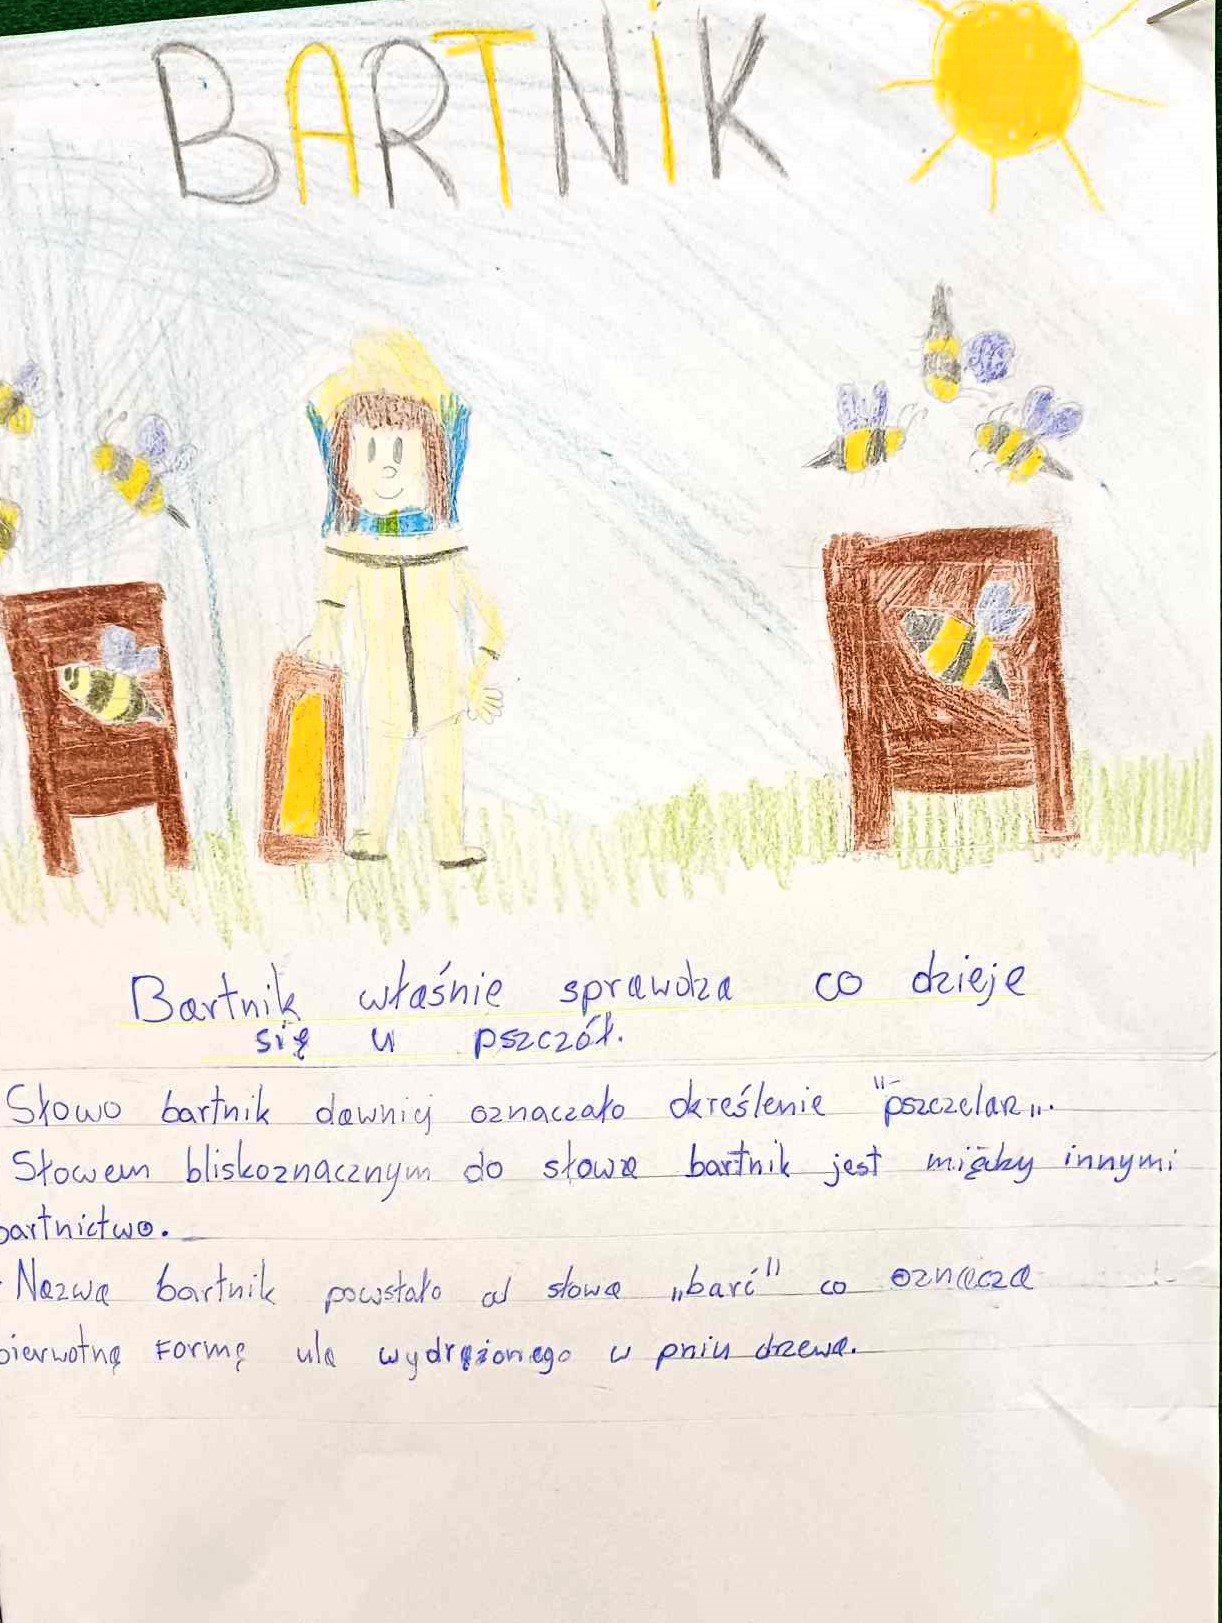 BARTNiK
Bartnik właśnie sprawdza co dzieje
się u pszczół.
Słowo bartnik dawniej oznaczało określenie "pszczelarz".
Słowem bliskoznacznym do słowa bartnik jest między innymi
bartnictwo.
- Nazwa bartnik powstało od słowa „barć" co oznacza
pierwotną formę ula wydrążonego w pniu drzewa.